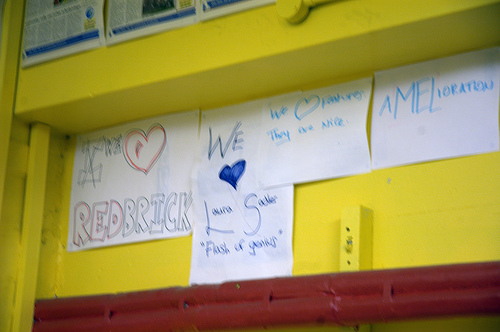 WE
REDBRICK
WE
Laura Sadler
"Flash of genius"
We features
They are nice.
AMELIORATION